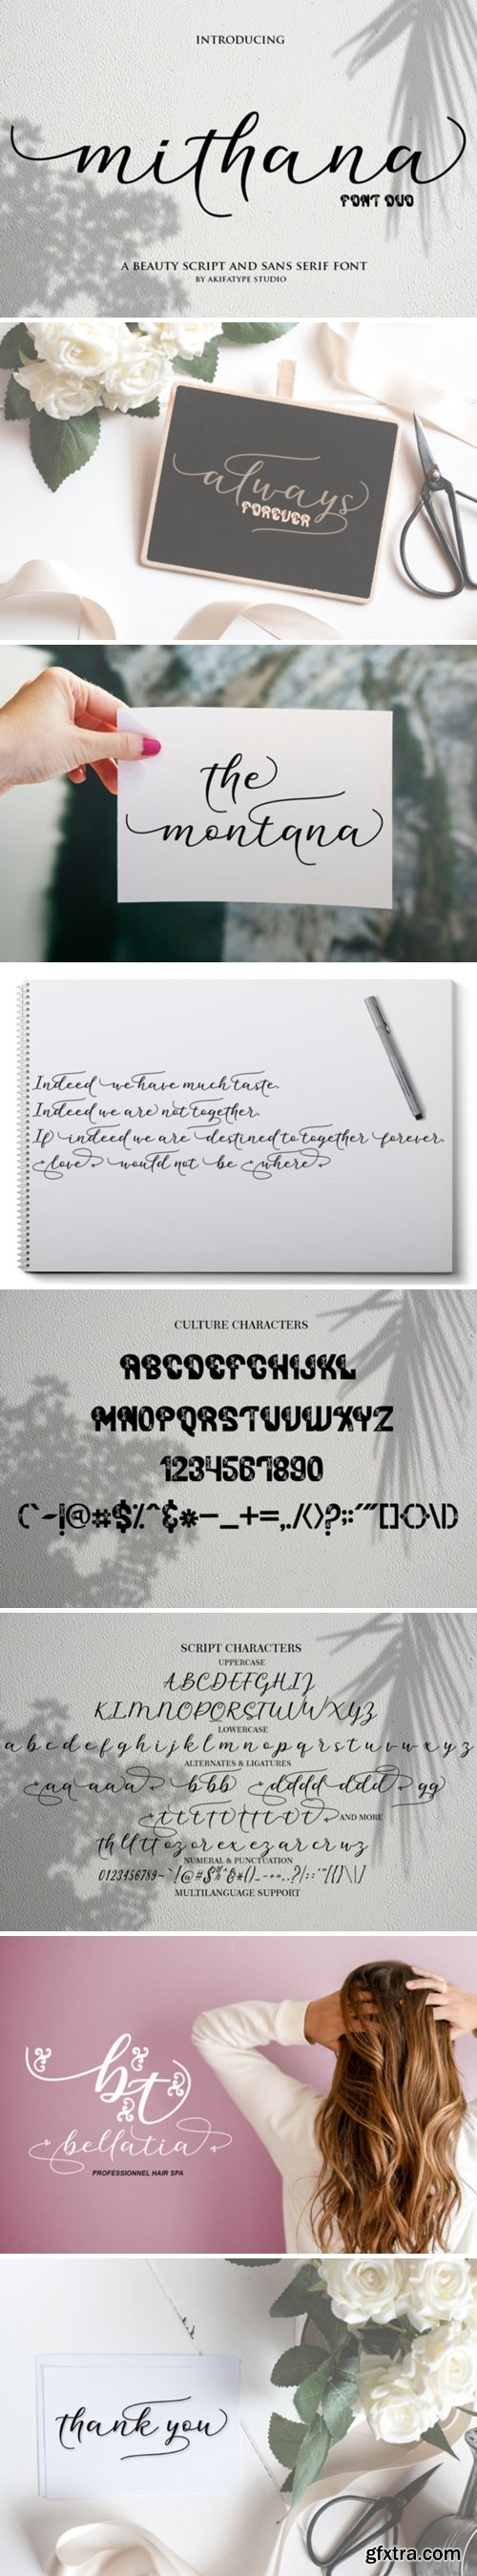 INTRODUCING
mithana
FONT DUO
A BEAUTY SCRIPT AND SANS SERIF FONT
BY AKIFATYPE STUDIO
always
FOREVER
the
montana
Indeed we have much taste.
Indeed we are not together.
If indeed we are destined to together forever.
love would not be where
CULTURE CHARACTERS
ABCDEFGHIJKL
MNOPQRSTUVWXYZ
1234567890
SCRIPT CHARACTERS
UPPERCASE
ABCDEFGHIJ
KLMNOPQRSTUVWXYZ
LOWERCASE
abcdefghijklmnopqrstuvwxyz
ALTERNATES & LIGATURES
AND MORE
NUMERAL & PUNCTUATION
0123456789
MULTILANGUAGE SUPPORT
bt
bellatia
PROFESSIONNEL HAIR SPA
thank you
gfxtra.com